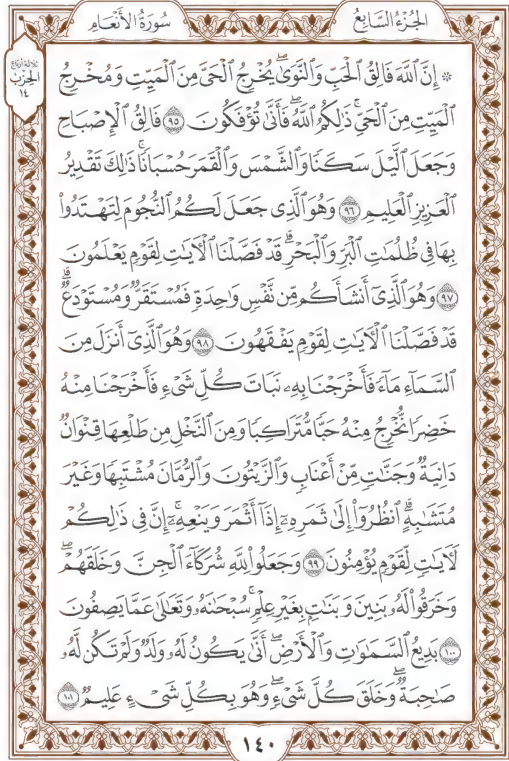 الجُزْءُ السَّابِعُ
سُورَةُ الأَنْعَامِ
ثلاثة أرباع
الحِزْبِ
١٤
۞ إِنَّ ٱللَّهَ فَالِقُ ٱلْحَبِّ وَٱلنَّوَىٰۖ يُخْرِجُ ٱلْحَىَّ مِنَ ٱلْمَيِّتِ وَمُخْرِجُ
ٱلْمَيِّتِ مِنَ ٱلْحَىِّۚ ذَٰلِكُمُ ٱللَّهُۖ فَأَنَّىٰ تُؤْفَكُونَ ٩٥ فَالِقُ ٱلْإِصْبَاحِ
وَجَعَلَ ٱلَّيْلَ سَكَنًا وَٱلشَّمْسَ وَٱلْقَمَرَ حُسْبَانًاۚ ذَٰلِكَ تَقْدِيرُ
ٱلْعَزِيزِ ٱلْعَلِيمِ ٩٦ وَهُوَ ٱلَّذِى جَعَلَ لَكُمُ ٱلنُّجُومَ لِتَهْتَدُوا۟
بِهَا فِى ظُلُمَٰتِ ٱلْبَرِّ وَٱلْبَحْرِۗ قَدْ فَصَّلْنَا ٱلْءَايَٰتِ لِقَوْمٍ يَعْلَمُونَ
٩٧ وَهُوَ ٱلَّذِىٓ أَنشَأَكُم مِّن نَّفْسٍ وَٰحِدَةٍ فَمُسْتَقَرٌّ وَمُسْتَوْدَعٌۗ
قَدْ فَصَّلْنَا ٱلْءَايَٰتِ لِقَوْمٍ يَفْقَهُونَ ٩٨ وَهُوَ ٱلَّذِىٓ أَنزَلَ مِنَ
ٱلسَّمَآءِ مَآءً فَأَخْرَجْنَا بِهِۦ نَبَاتَ كُلِّ شَىْءٍ فَأَخْرَجْنَا مِنْهُ
خَضِرًا نُّخْرِجُ مِنْهُ حَبًّا مُّتَرَاكِبًا وَمِنَ ٱلنَّخْلِ مِن طَلْعِهَا قِنْوَانٌ
دَانِيَةٌ وَجَنَّٰتٍ مِّنْ أَعْنَابٍ وَٱلزَّيْتُونَ وَٱلرُّمَّانَ مُشْتَبِهًا وَغَيْرَ
مُتَشَٰبِهٍۗ ٱنظُرُوٓا۟ إِلَىٰ ثَمَرِهِۦٓ إِذَآ أَثْمَرَ وَيَنْعِهِۦٓۚ إِنَّ فِى ذَٰلِكُمْ
لَءَايَٰتٍ لِّقَوْمٍ يُؤْمِنُونَ ٩٩ وَجَعَلُوا۟ لِلَّهِ شُرَكَآءَ ٱلْجِنَّ وَخَلَقَهُمْۖ
وَخَرَقُوا۟ لَهُۥ بَنِينَ وَبَنَٰتٍۭ بِغَيْرِ عِلْمٍۚ سُبْحَٰنَهُۥ وَتَعَٰلَىٰ عَمَّا يَصِفُونَ
١٠٠ بَدِيعُ ٱلسَّمَٰوَٰتِ وَٱلْأَرْضِۖ أَنَّىٰ يَكُونُ لَهُۥ وَلَدٌ وَلَمْ تَكُن لَّهُۥ
صَٰحِبَةٌۖ وَخَلَقَ كُلَّ شَىْءٍۖ وَهُوَ بِكُلِّ شَىْءٍ عَلِيمٌ ١٠١
١٤٠